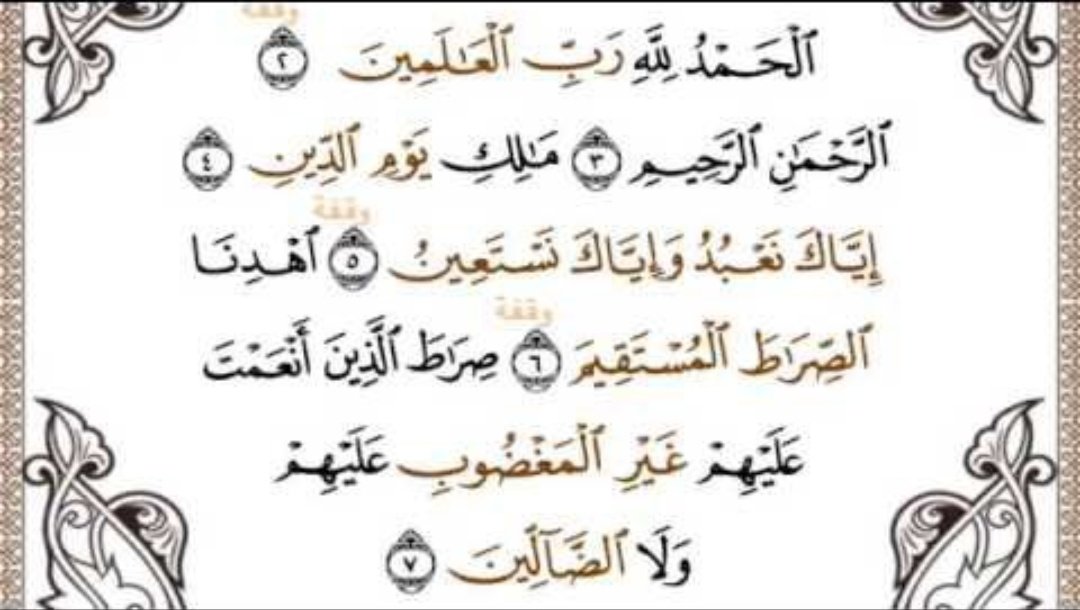 وقفة
ٱلْحَمْدُ لِلَّهِ رَبِّ ٱلْعَـٰلَمِينَ ٢
ٱلرَّحْمَـٰنِ ٱلرَّحِيمِ ٣ مَـٰلِكِ يَوْمِ ٱلدِّينِ ٤
وقفة
إِيَّاكَ نَعْبُدُ وَإِيَّاكَ نَسْتَعِينُ ٥ ٱهْدِنَا
وقفة
ٱلصِّرَٰطَ ٱلْمُسْتَقِيمَ ٦ صِرَٰطَ ٱلَّذِينَ أَنْعَمْتَ
عَلَيْهِمْ غَيْرِ ٱلْمَغْضُوبِ عَلَيْهِمْ
وَلَا ٱلضَّآلِّينَ ٧